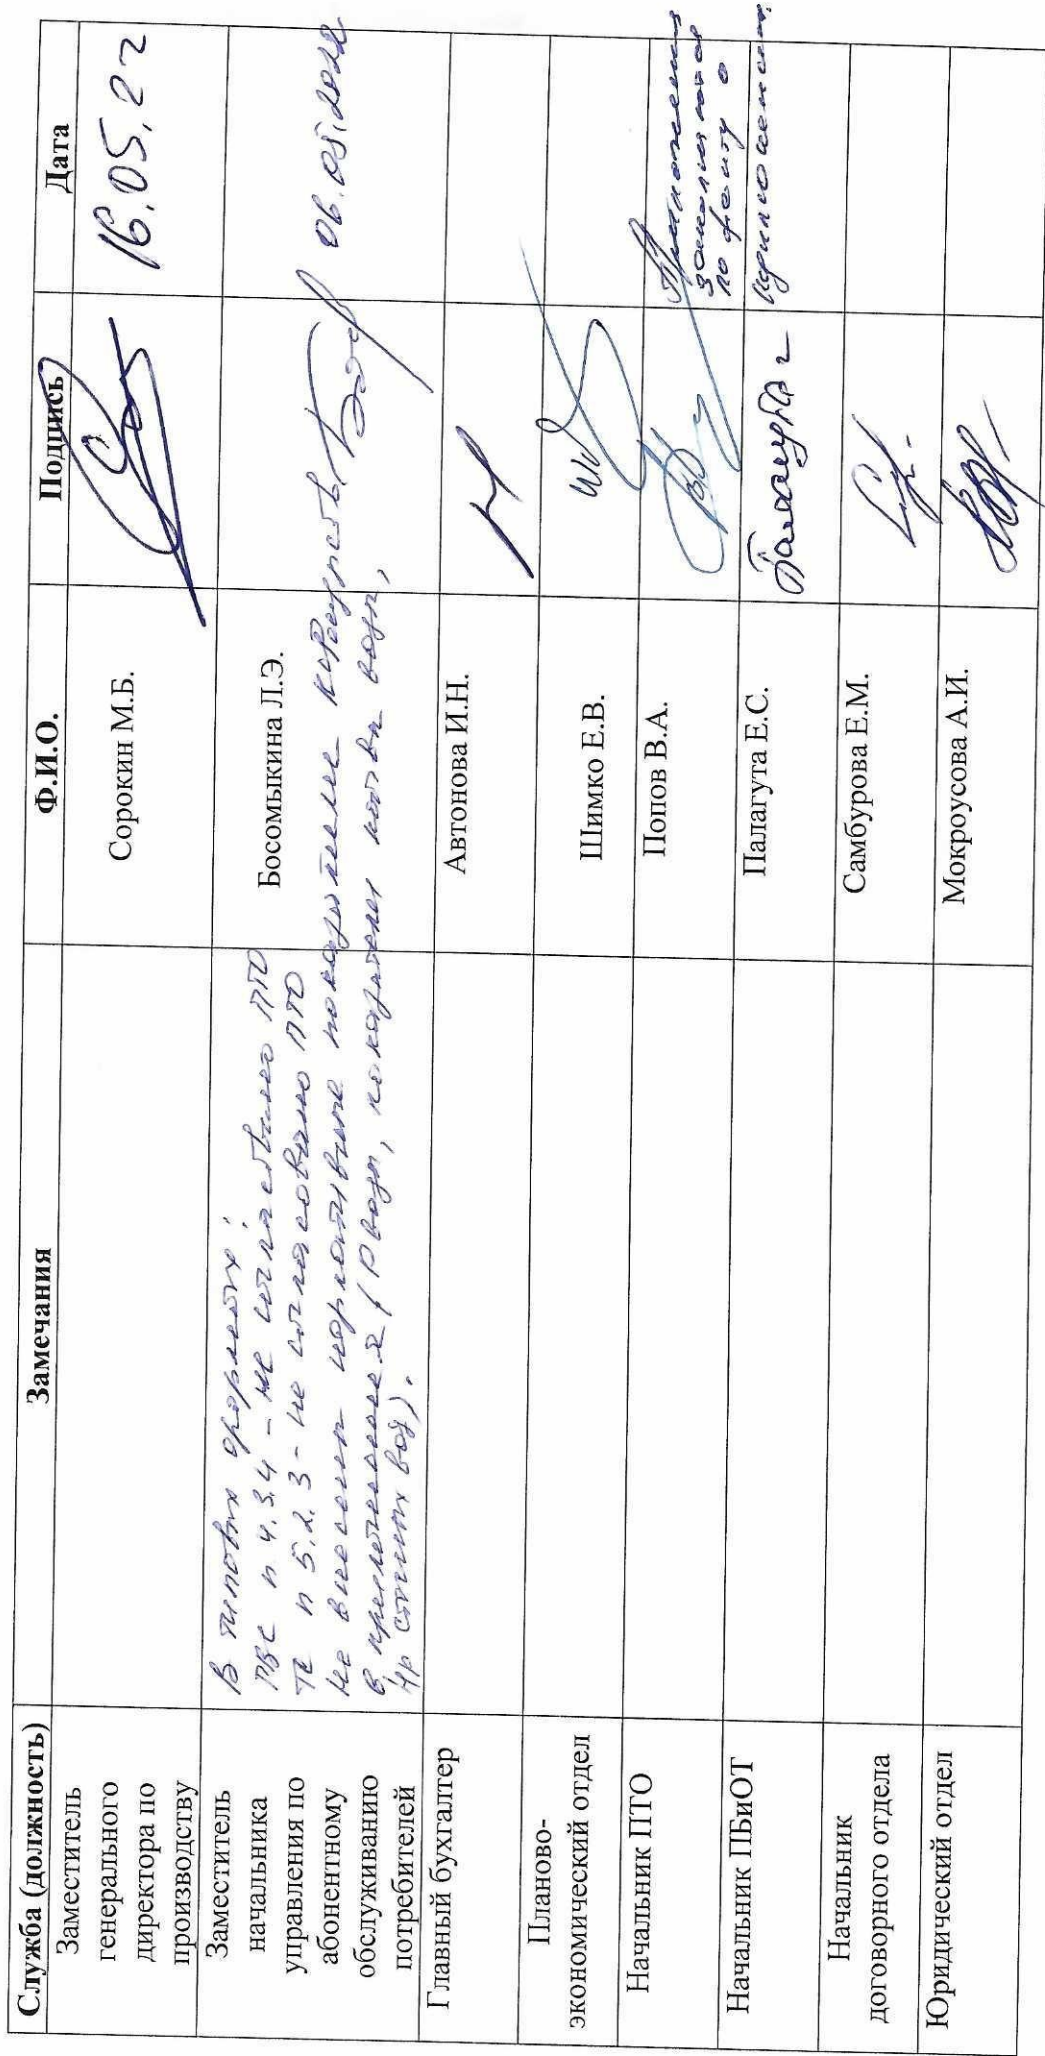 Служба (должность) Замечания Ф.И.О. Подпись Дата
Заместитель
генерального
директора по
производству
Сорокин М.Б.
16.05.22
Заместитель
начальника
управления по
абонентному
обслуживанию
потребителей
В типовых формах:
п 4.3.4 - не согласовано ПТО
ТС п 5.2.3 - не согласовано ПТО
Не внесены нормативные показатели
в приложения (Р воды, показатели кач-ва воды,
сточных вод).
Босомыкина Л.Э.
06.05.2022
Главный бухгалтер
Автонова И.Н.
Планово-
экономический отдел
Шимко Е.В.
Начальник ПТО
Попов В.А.
Начальник ПБиОТ
Палагута Е.С.
по факту о
Начальник
договорного отдела
Самбурова Е.М.
Юридический отдел
Мокроусова А.И.